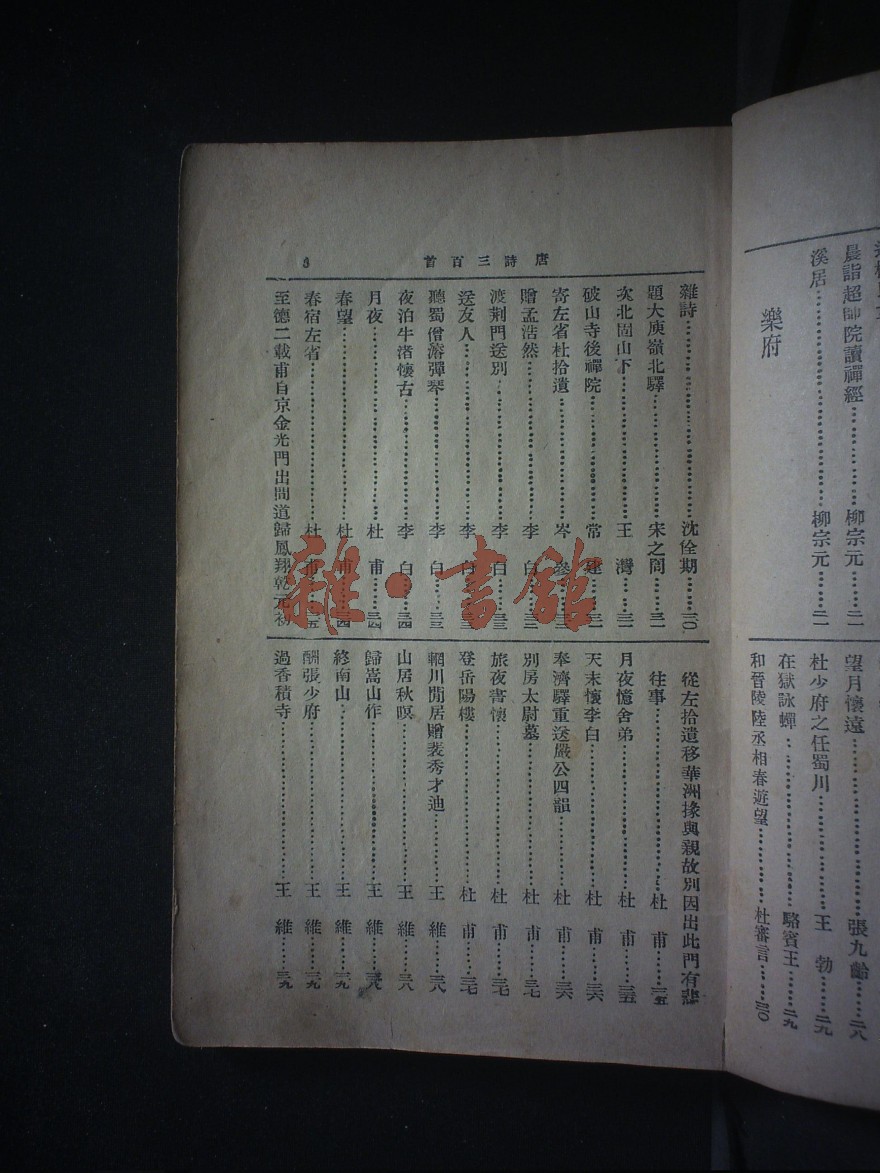 晨詣超師院讀禪經……………柳宗元……二一
溪居…………………………柳宗元……二一
樂府
望月懷遠……………………張九齡……二八
杜少府之任蜀川………………王勃……二九
在獄詠蟬……………………駱賓王……二九
和晉陵陸丞相春遊望…………杜審言……三〇
唐詩三百首
8
雜詩…………………………沈佺期……三〇
題大庾嶺北驛…………………宋之問……三一
次北固山下…………………王灣……三一
破山寺後禪院…………………常建
寄左省杜拾遺…………………岑參
贈孟浩然……………………李白
渡荆門送別…………………李白
送友人………………………李白
聽蜀僧濬彈琴…………………李白……三三
夜泊牛渚懷古…………………李白……三四
月夜…………………………杜甫……三四
春望…………………………杜甫……三四
春宿左省……………………杜甫……三五
至德二載甫自京金光門出間道歸鳳翔乾元初
從左拾遺移華洲掾與親故別因出此門有悲
往事…………………………杜甫……三五
月夜憶舍弟…………………杜甫……三五
天末懷李白…………………杜甫……三六
奉濟驛重送嚴公四韻…………杜甫……三六
別房太尉墓…………………杜甫……三七
旅夜書懷……………………杜甫……三七
登岳陽樓……………………杜甫……三七
輞川閒居贈裴秀才迪…………王維……三八
山居秋暝……………………王維……三八
歸嵩山作……………………王維……三八
終南山………………………王維……三九
酬張少府……………………王維……三九
過香積寺……………………王維……三九
雜·書館